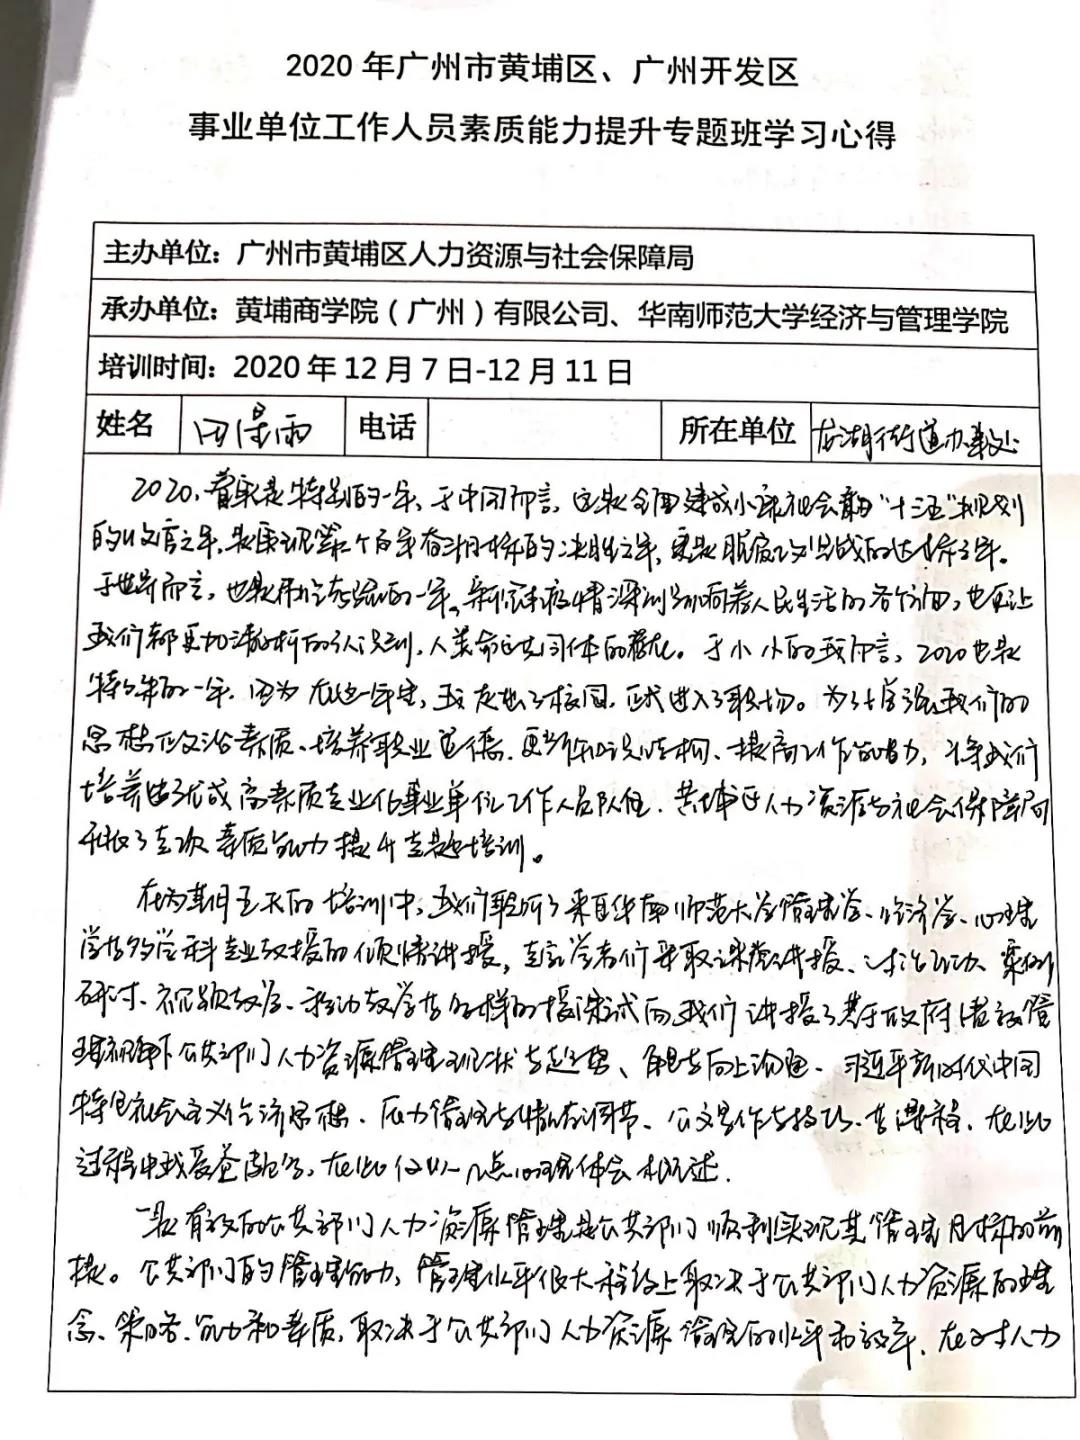 2020年广州市黄埔区、广州开发区
事业单位工作人员素质能力提升专题班学习心得
主办单位：广州市黄埔区人力资源与社会保障局
承办单位：黄埔商学院（广州）有限公司、华南师范大学经济与管理学院
培训时间：2020年12月7日-12月11日
姓名 田景雨 电话 所在单位 龙湖街道办事处
2020，着实是特别的一年，于中国而言，这是全面建成小康社会和“十三五”规划
的收官之年，是实现第一个百年奋斗目标的决胜之年，更是脱贫攻坚战的达标之年。
于世界而言，也是不平凡的一年，新冠疫情深刻影响着人民生活的各方面，也更让
我们都更加清晰的认识到，人类命运共同体的 。于小小的我而言，2020也是
特殊的一年，因为在这一年里，我走出了校园，正式进入了职场。为了增强我们的
思想政治素质、培养职业道德、更新知识结构、提高工作能力，将我们
培养造就成高素质专业化事业单位工作人员队伍，黄埔区人力资源与社会保障局
开展了这次素质能力提升专题培训。
在为期五天的培训中，我们聆听了来自华南师范大学管理学、经济学、心理
学等多学科专业教授的倾情讲授，专家学者们采取课堂讲授、讨论互动、案例
研讨、视频教学、移动教学等多样的授课形式向我们讲授了基于政府绩效管
理视野下公共部门人力资源管理现状与趋势、自我与向上沟通、习近平新时代中国
特色社会主义经济思想、压力管理与情绪调节、公文写作与技巧等课程，在此
过程中我受益匪浅，在此仅以几点心得体会概述。
一是有效的公共部门人力资源管理是公共部门顺利实现其管理目标的前
提。公共部门的管理能力，管理水平很大程度上取决于公共部门人力资源的理
念、策略、能力和素质，取决于公共部门人力资源管理的水平和效率，在对人力